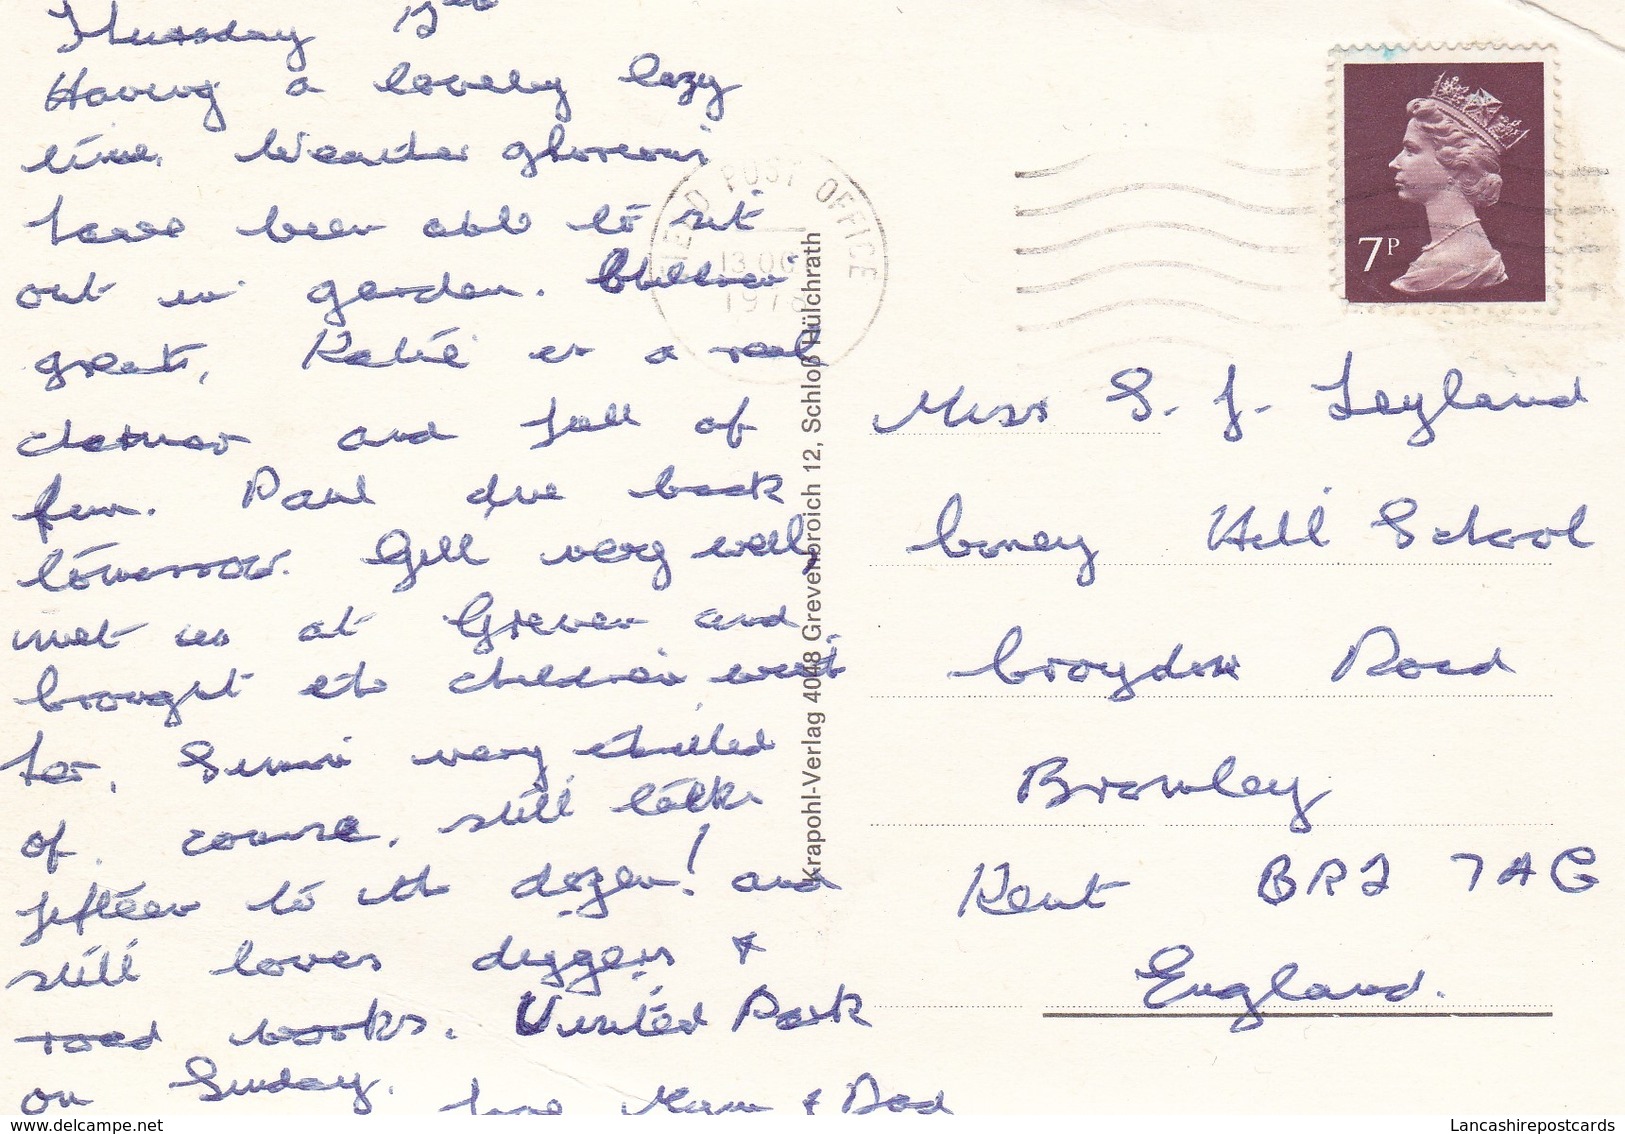 Thursday 12th
Having a lovely lazy
time. Weather glorious
have been able to sit
out in garden. Children
great, Katie is a real
charmer and full of
fun. Paul due back
tomorrow. Gill very well,
met us at Greven and
brought the children with
her, Simon very thrilled
of course, still talks
fifteen to the dozen! and
still loves diggers &
road books. Visited Park
on Sunday. Love Mum & Dad
FIELD POST OFFICE
13 OC
1978
Krapohl-Verlag 4048 Grevenbroich 12, Schloß Hülchrath
7P
Miss S. J. Leyland
Coney Hill School
Croydon Road
Bromley
Kent BR2 7AG
England.
www.delcampe.net
Lancashirepostcards